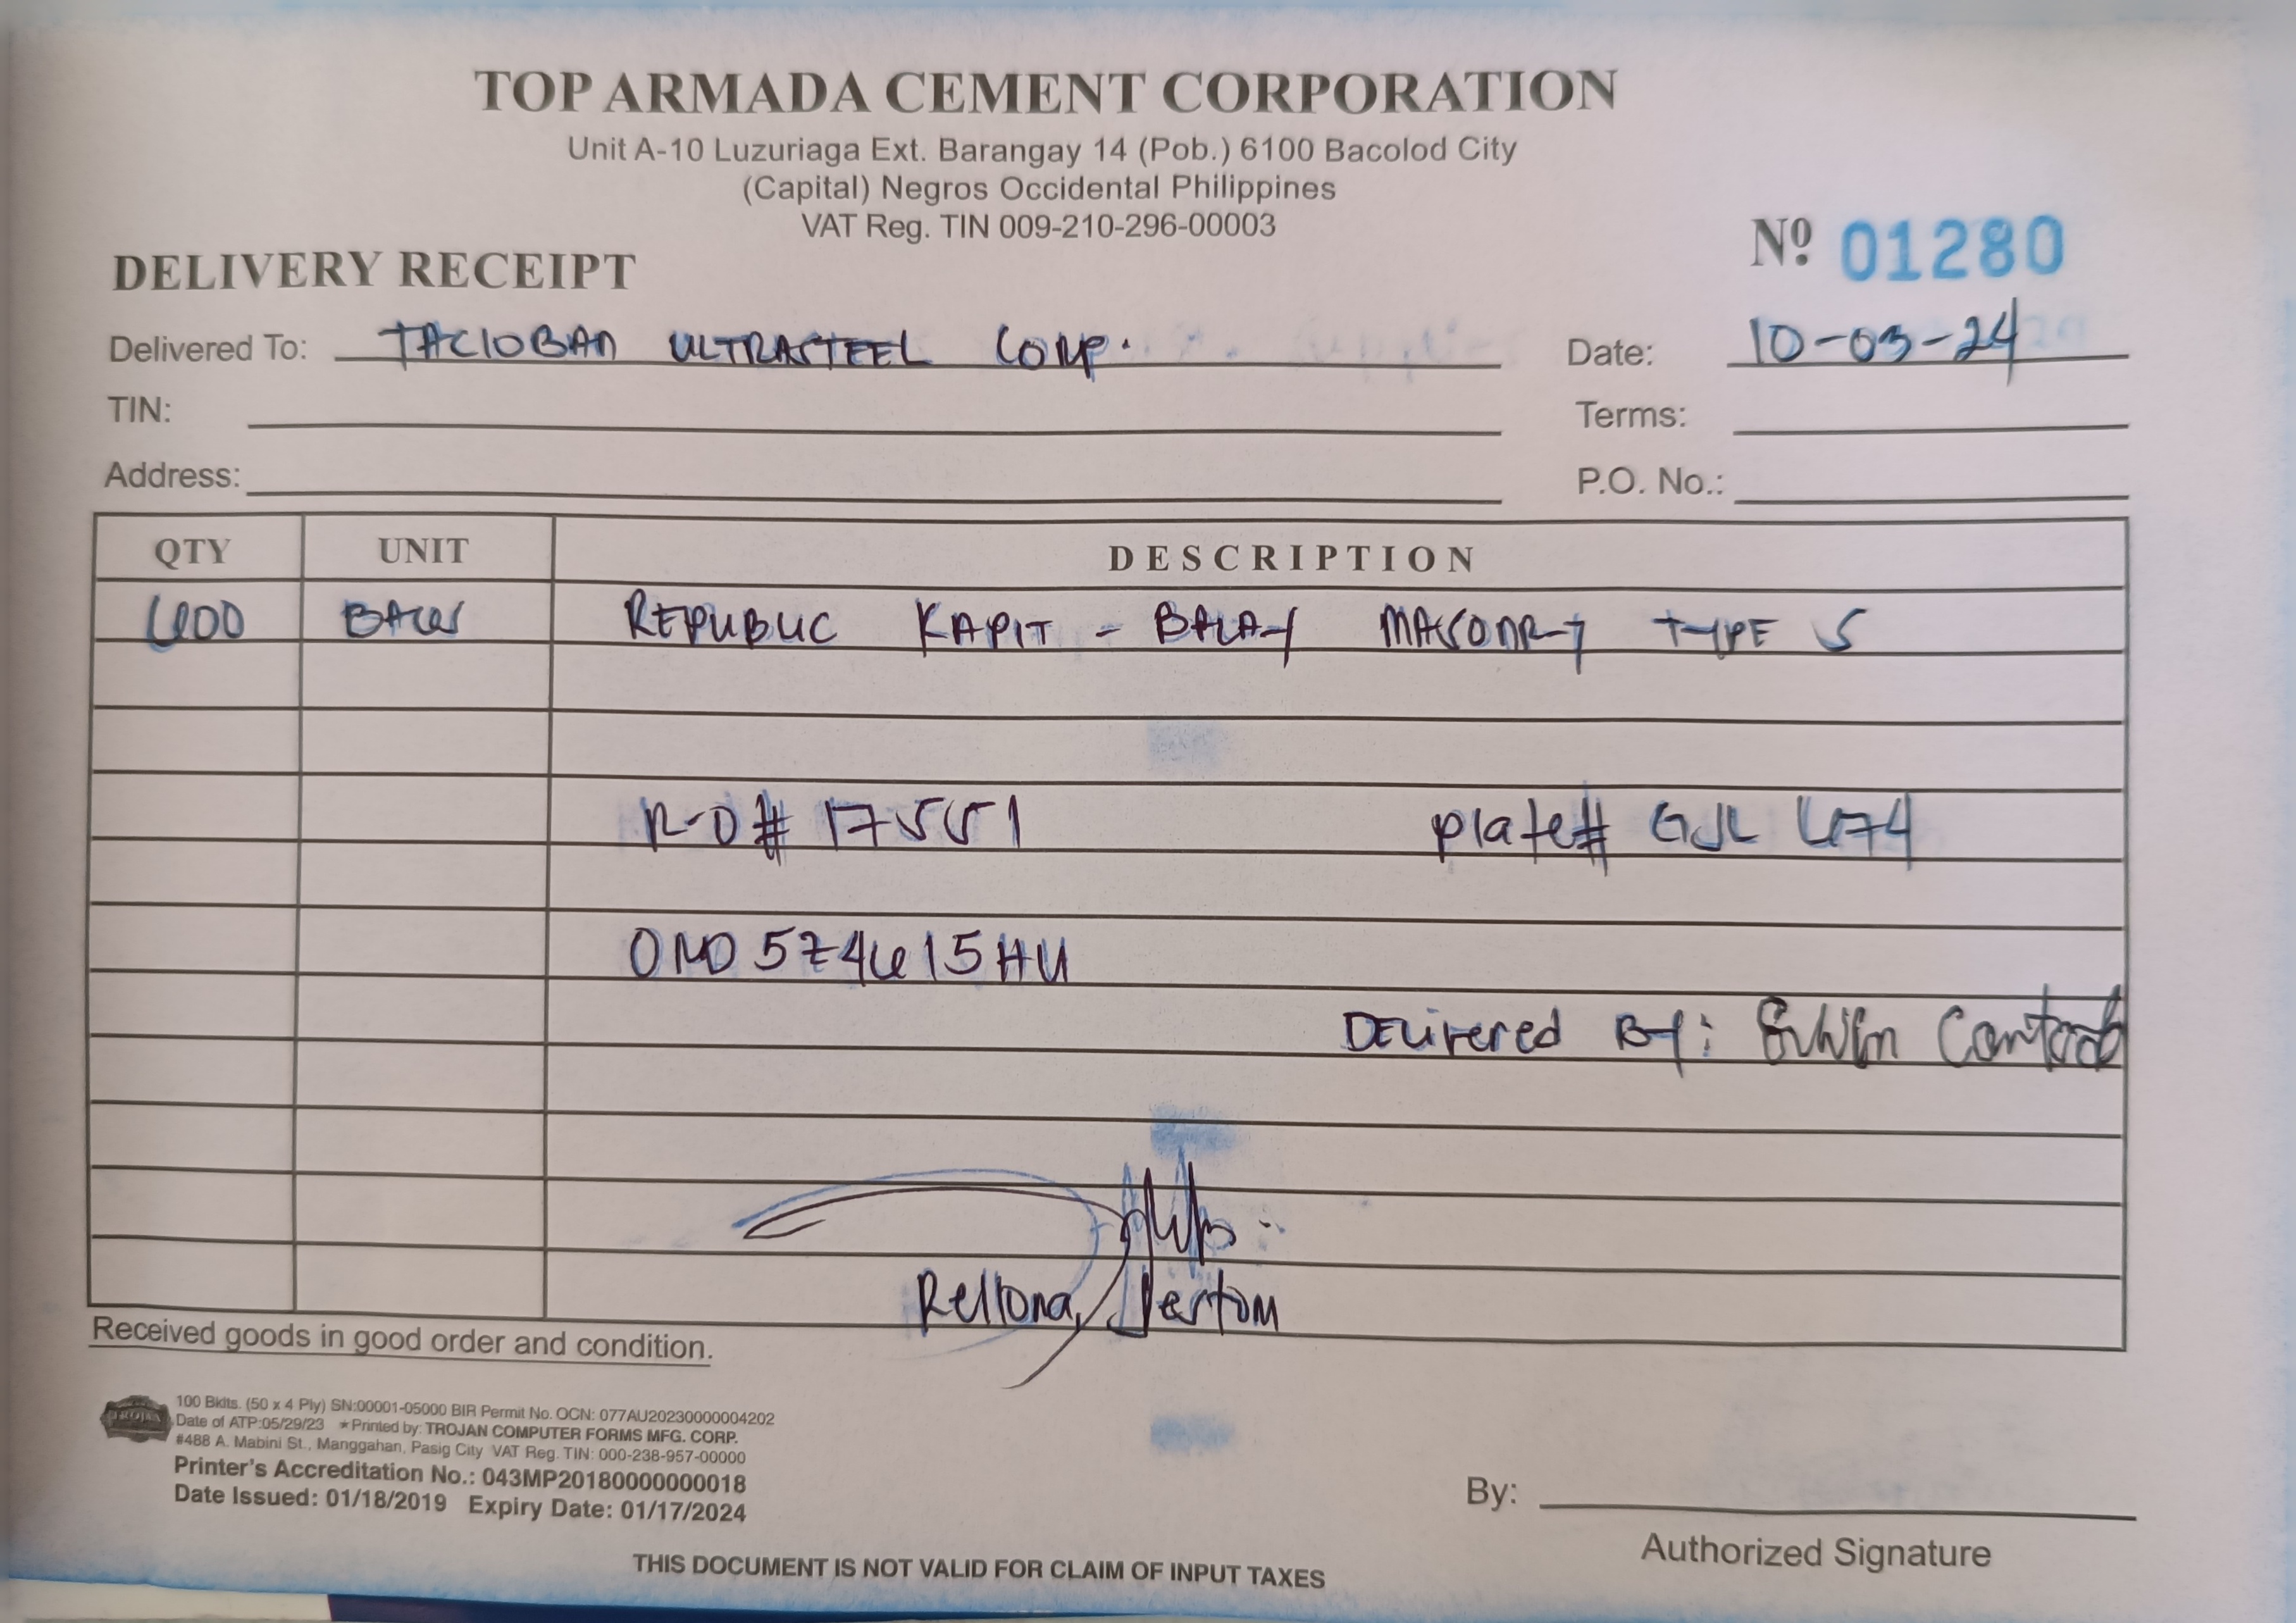 TOP ARMADA CEMENT CORPORATION
Unit A-10 Luzuriaga Ext. Barangay 14 (Pob.) 6100 Bacolod City
(Capital) Negros Occidental Philippines
VAT Reg. TIN 009-210-296-00003
Nº 01280
DELIVERY RECEIPT
Delivered To: TACLOBAN ULTRASTEEL CORP. Date: 10-03-24
TIN: Terms:
Address: P.O. No.:
QTY UNIT DESCRIPTION
600 BAGS REPUBLIC KAPIT - BALAY MASONRY TYPE S
R-O# 17551 plate# GJL 674
OND 574615HU
DELivered By: Erwin
Rellona, Jertom
Received goods in good order and condition.
TROJAN
100 Bklts. (50 x 4 Ply) SN:00001-05000 BIR Permit No. OCN: 077AU20230000004202
Date of ATP:05/29/23 ★Printed by: TROJAN COMPUTER FORMS MFG. CORP.
#488 A. Mabini St., Manggahan, Pasig City VAT Reg. TIN: 000-238-957-00000
Printer's Accreditation No.: 043MP20180000000018
Date Issued: 01/18/2019 Expiry Date: 01/17/2024
By:
Authorized Signature
THIS DOCUMENT IS NOT VALID FOR CLAIM OF INPUT TAXES